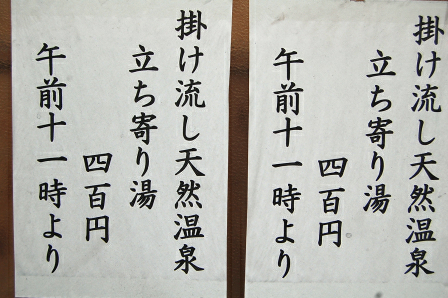 掛け流し天然温泉
立ち寄り湯
四百円
午前十一時より
掛け流し天然温泉
立ち寄り湯
四百円
午前十一時より